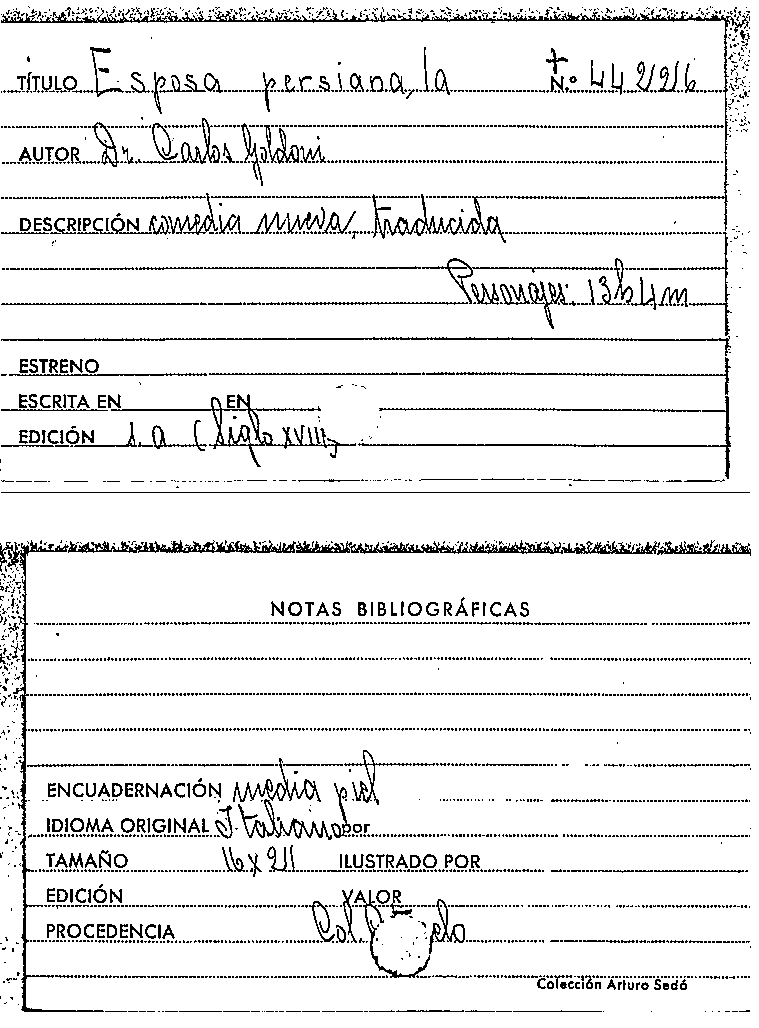 TÍTULO Esposa persiana, la N.º 44226
AUTOR Dr. Carlos Goldoni
DESCRIPCIÓN comedia nueva, traducida
Personajes: 13h 4m
ESTRENO
ESCRITA EN EN
EDICIÓN s. a (Siglo XVIII)
NOTAS BIBLIOGRÁFICAS
ENCUADERNACIÓN media piel
IDIOMA ORIGINAL Italiano por
TAMAÑO 16 x 21 ILUSTRADO POR
EDICIÓN VALOR
PROCEDENCIA Col.
Colección Arturo Sedó